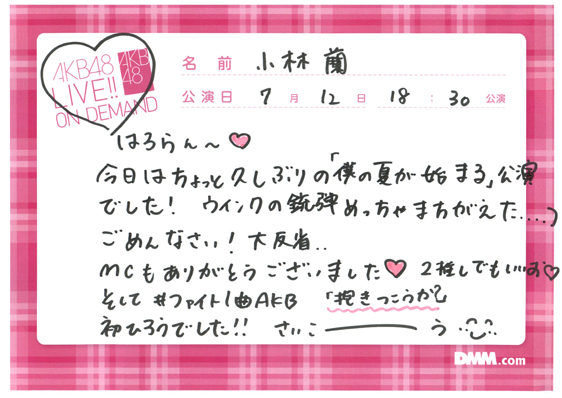 AKB48
LIVE!!
ON DEMAND
AKB
48
名前 小林 蘭
公演日 7月12日 18:30公演
はろらん〜♥
今日はちょっと久しぶりの「僕の夏が始まる」公演
でした! ウインクの銃弾めっちゃまちがえた.....)
ごめんなさい! 大反省..
MCもありがとうございました♥ 2推しでもいいお♡
そして #ファイト1曲AKB 「抱きつこうか?」
初ひろうでした!! さいこ———う
DMM.com